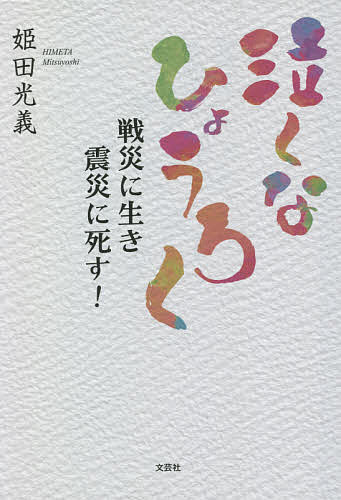 泣くな
ひょうろく
戦災に生き
震災に死す!
姫田光義
HIMETA
Mitsuyoshi
文芸社